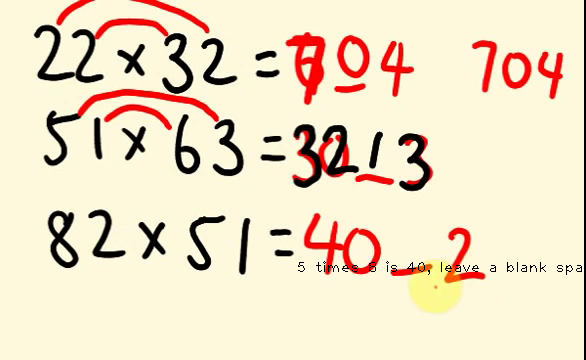 22 x 32 = 704 704
51 x 63 = 3213
82 x 51 = 40_2
5 times 8 is 40, leave a blank spa